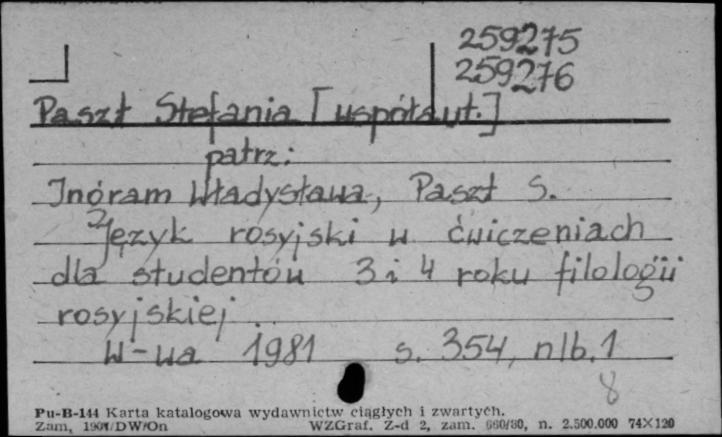 259275
259276
Paszt Stefania [współaut.]
patrz:
Inóram Władysława, Paszt S.
Język rosyjski w ćwiczeniach
dla studentów 3 i 4 roku filologii
rosyjskiej
W-wa 1981 s. 354, nlb. 1
8
Pu-B-144 Karta katalogowa wydawnictw ciągłych i zwartych.
Zam. DW/On WZGraf. Z-d 2, zam. 660/80, n. 2.500.000 74×120